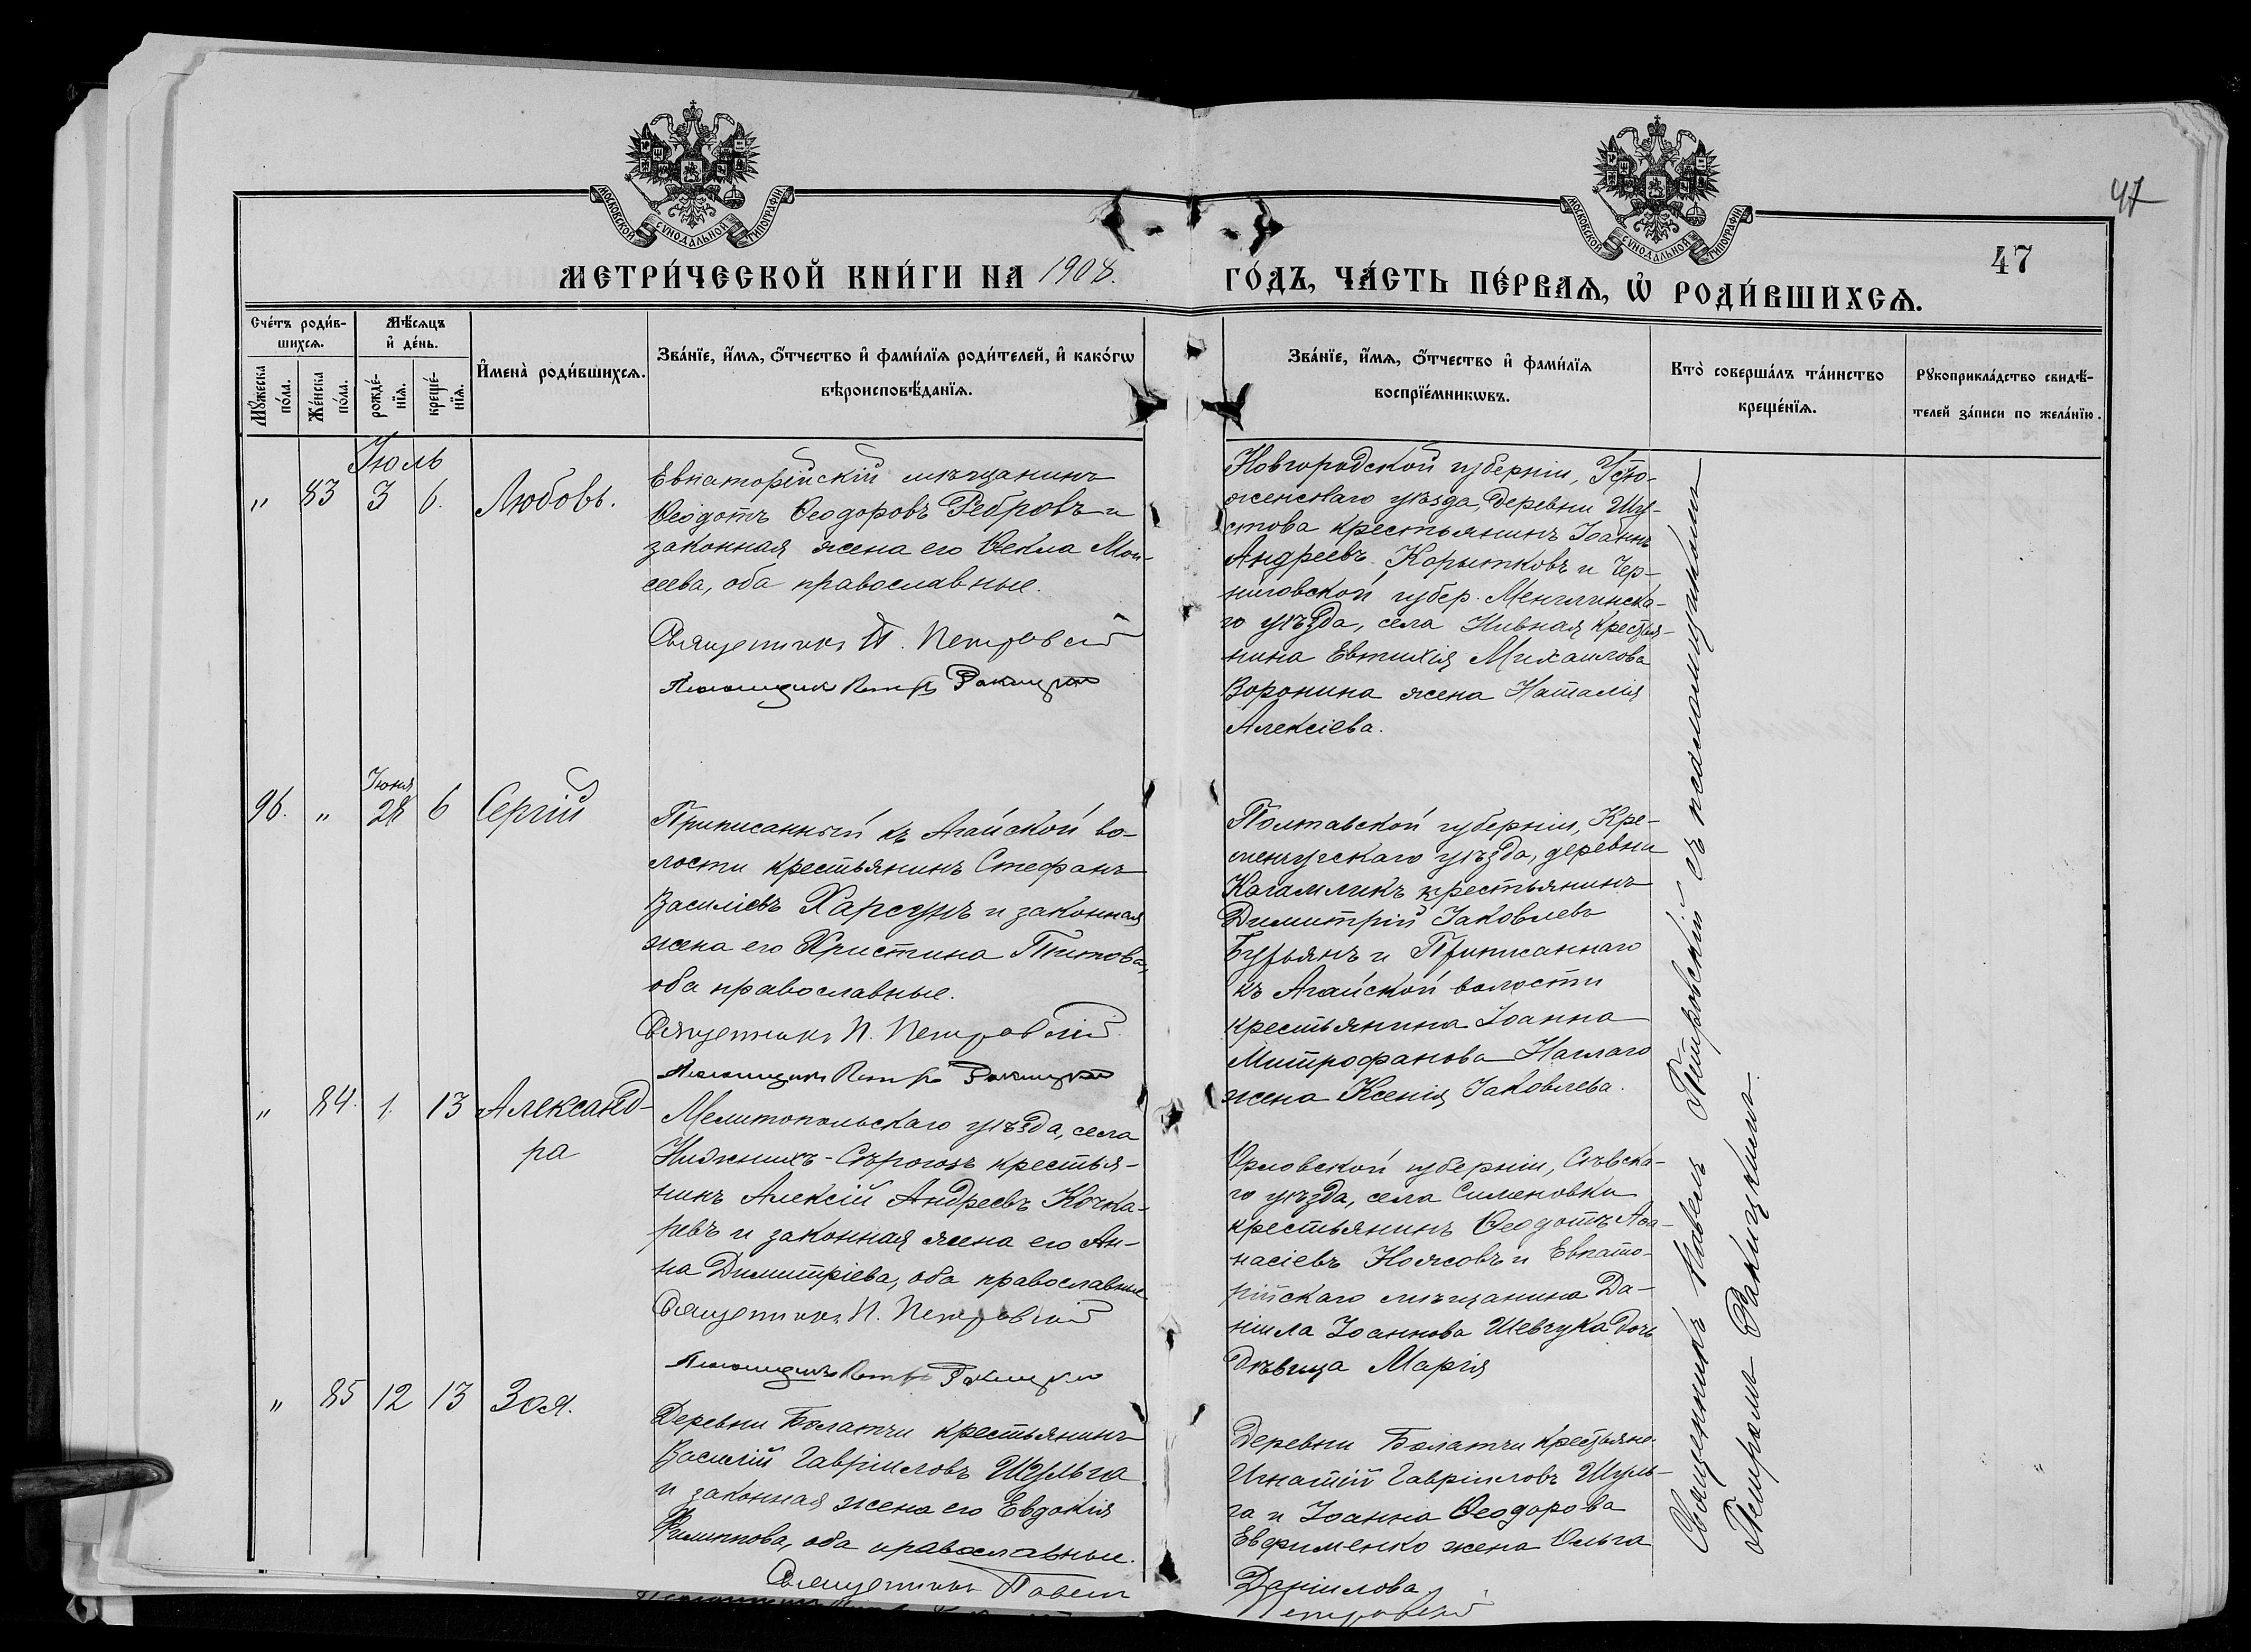 47
МОСКОВСКОЙ СѴНОДАЛЬНОЙ ТИПОГРАФІИ
МОСКОВСКОЙ СѴНОДАЛЬНОЙ ТИПОГРАФІИ
47
МЕТРИ́ЧЕСКОЙ КНИ́ГИ НА 1908.
ГО́ДЪ, ЧА́СТЬ ПЕ́РВАѦ, Ѡ҆ РОДИ́ВШИХСѦ.
Сче́тъ роди́в-
шихсѧ.
Мꙋ́жеска
по́ла.
Же́нска
по́ла.
Мѣ́сѧцъ
и҆ де́нь.
рожде́-
нїѧ.
креще́-
нїѧ.
И҆мена̀ роди́вшихсѧ.
Зва́нїе, и҆́мѧ, ѻ҆́тчество и҆ фами́лїѧ роди́телей, и҆ како́гѡ
вѣроисповѣ́данїѧ.
Зва́нїе, и҆́мѧ, ѻ҆́тчество и҆ фами́лїѧ
воспрїе́мникѡвъ.
Кто̀ соверша́лъ та́инство
креще́нїѧ.
Рꙋкоприкла́дство свидѣ́-
телей за́писи по жела́нїю.
Іюль
" 83 3 6. Любовь.
Евпаторійскій мѣщанинъ
Ѳеодотъ Ѳеодоровъ Ребровъ и
законная жена его Ѳекла Мои-
сеева, оба православные.
Священникъ П. Петровскій
Псаломщикъ Петръ Ракицкій
Новгородской губерніи, Устю-
женскаго уѣзда, деревни Шу-
стова крестьянинъ Іоаннъ
Андреевъ Корытковъ и Чер-
ниговской губер. Мглинска-
го уѣзда, села Нивная крестья-
нина Евтихія Михаилова
Воронина жена Наталія
Алексіева.
Іюня
96. " 28 6 Сергій
Приписанный къ Агайской во-
лости крестьянинъ Стефанъ
Василіевъ Харсунъ и законная
жена его Христина Титова,
оба православные.
Священникъ П. Петровскій
Псаломщикъ Петръ Ракицкій
Полтавской губерніи, Кре-
менчугскаго уѣзда, деревни
Кагамликъ крестьянинъ
Димитрій Іаковлевъ
Бурьянъ и Приписаннаго
къ Агайской волости
крестьянина Іоанна
Митрофанова Наглаго
жена Ксенія Іаковлева.
" 84. 1. 13 Александ-
ра
Мелитопольскаго уѣзда, села
Нижнихъ-Сѣрогозъ крестья-
нинъ Алексій Андреевъ Кочка-
ревъ и законная жена его Ан-
на Димитріева, оба православные
Священникъ П. Петровскій
Псаломщикъ Петръ Ракицкій
Орловской губерніи, Сѣвска-
го уѣзда, села Сименовки
крестьянинъ Ѳеодотъ Аѳа-
насіевъ Ноясовъ и Евпато-
рійскаго мѣщанина Да-
ніила Іоаннова Шевчука дочь
дѣвица Марія
" 85 12 13 Зоя.
Деревни Болатчи крестьянинъ
Василій Гавріиловъ Шульга
и законная жена его Евдокія
Филиппова, оба православные.
Священникъ Павелъ
Петровскій
Деревни Болатчи крестьяне.
Игнатій Гавріиловъ Шуль-
га и Іоанна Ѳеодорова
Евфименко жена Ольга
Даніилова.
Священникъ Павелъ Петровскій съ псаломщикомъ
Петромъ Ракицкимъ.